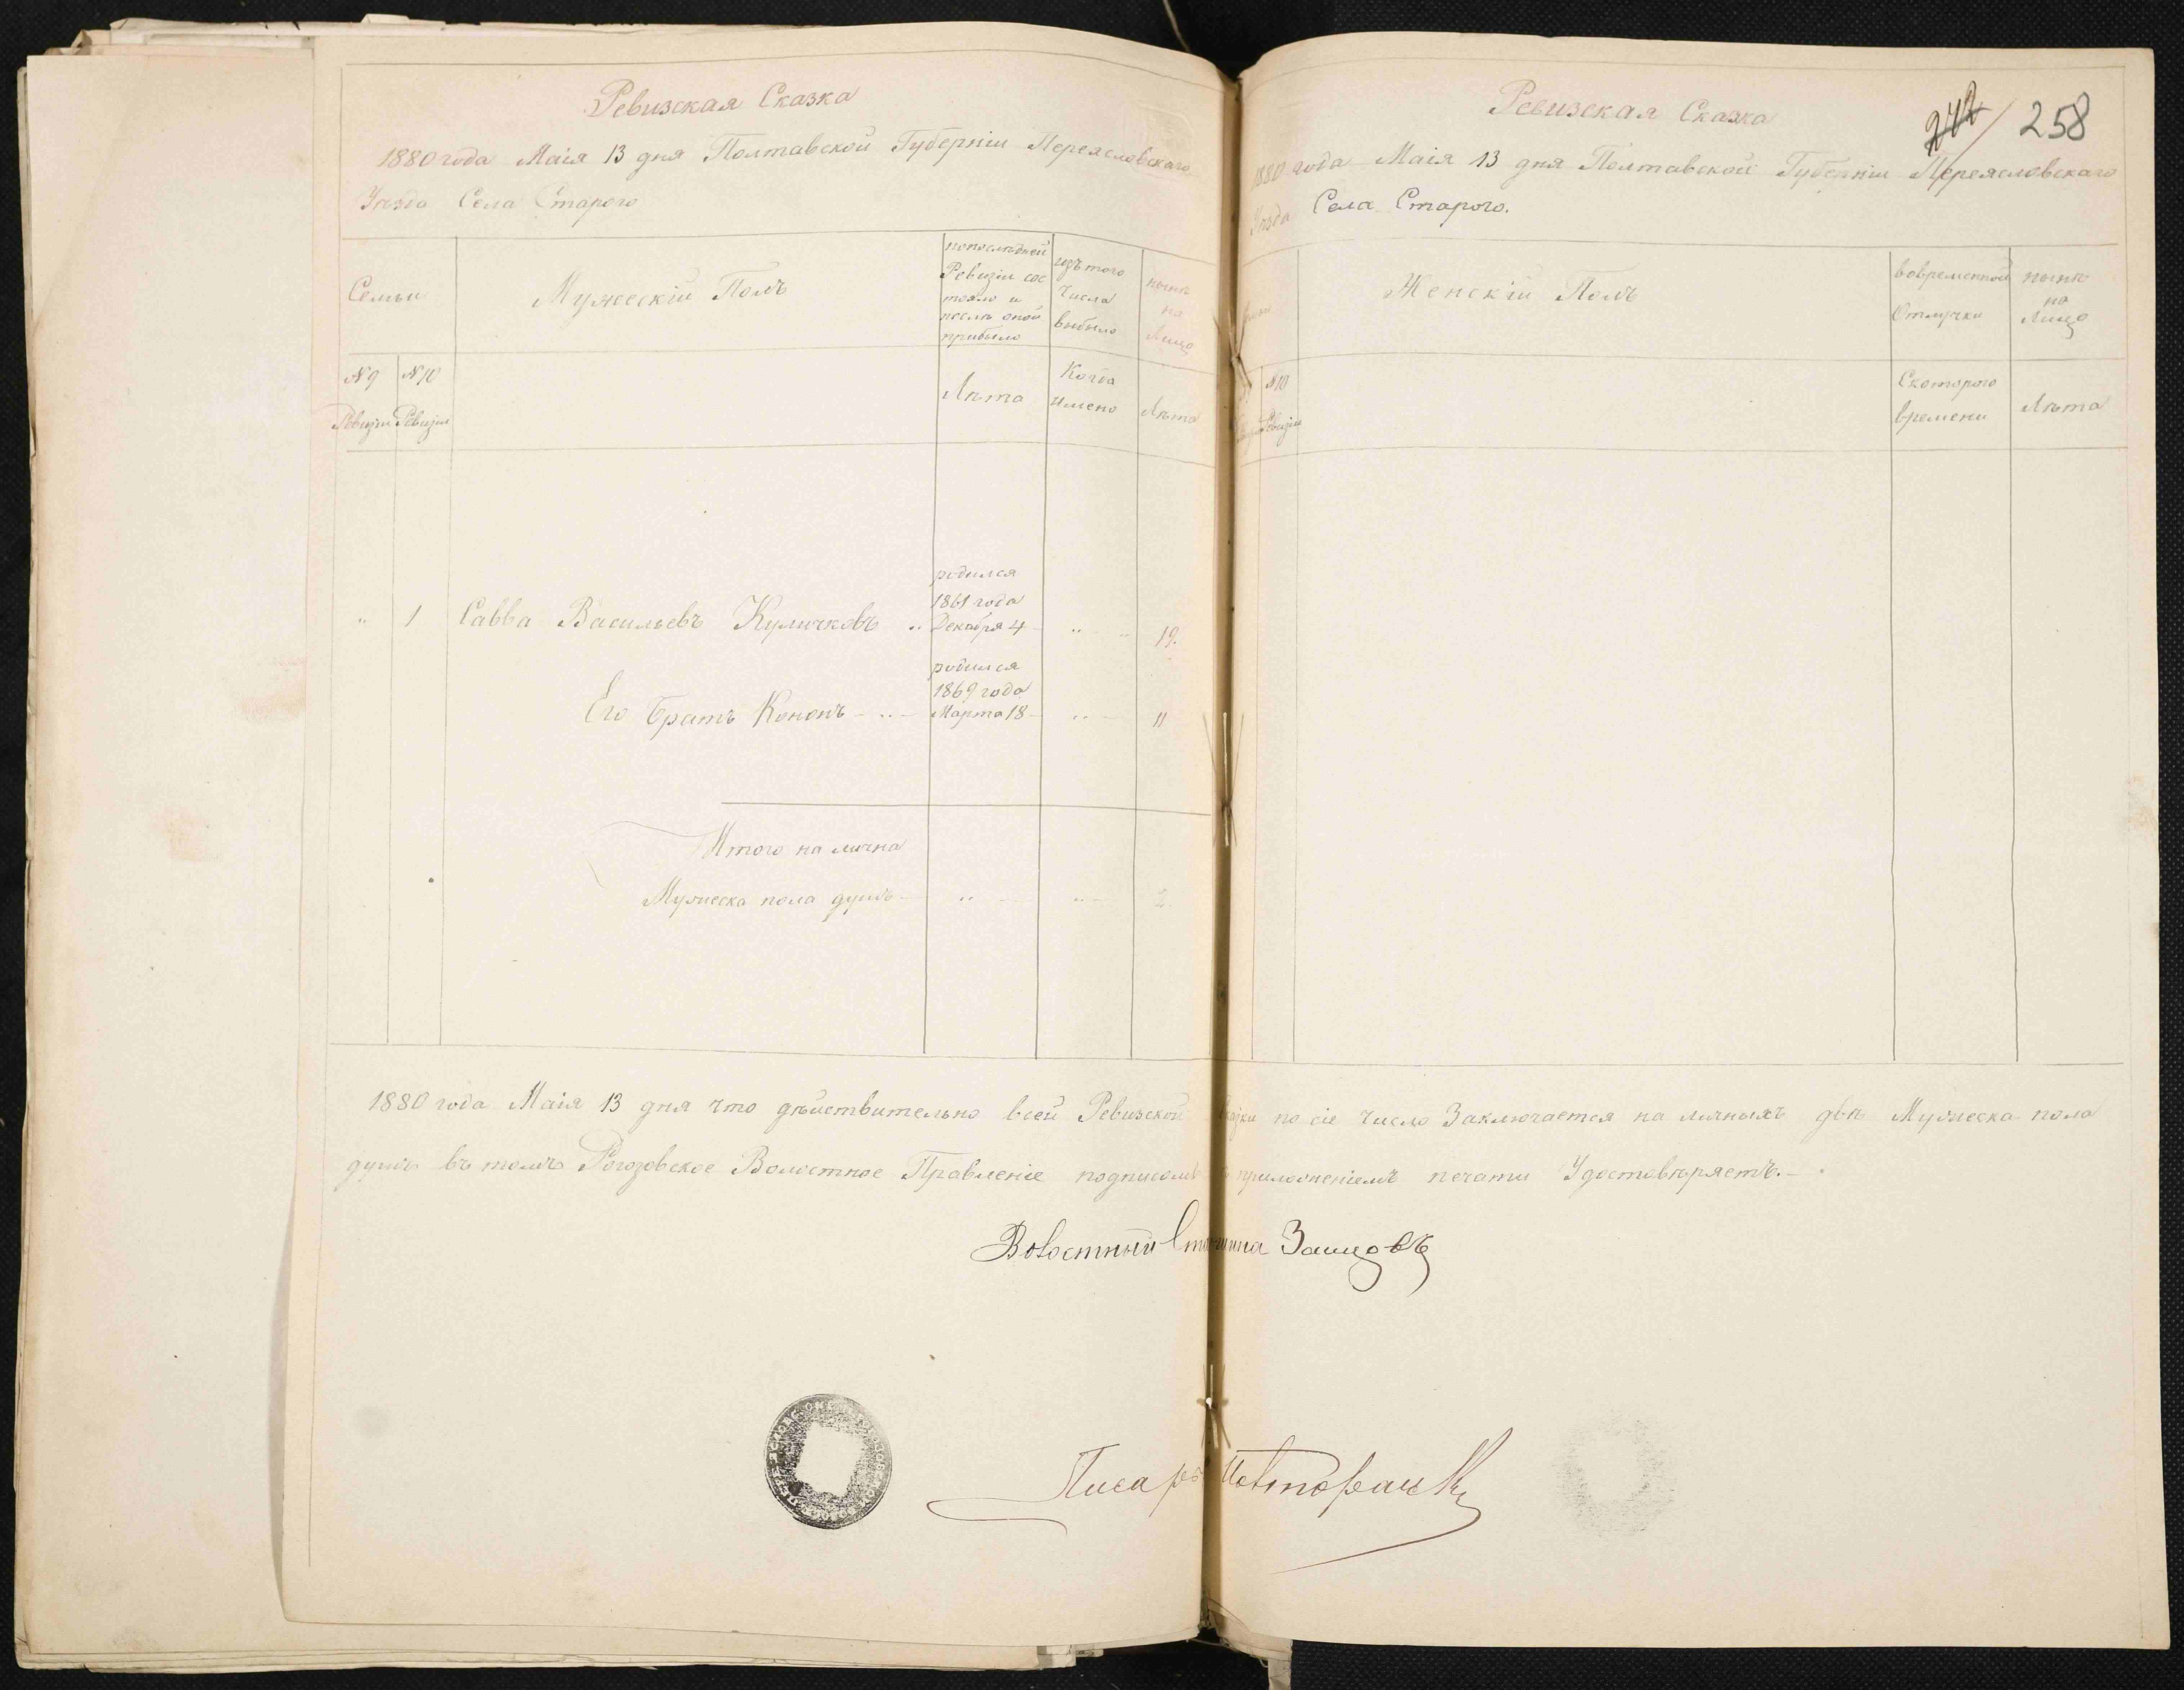 Ревизская Сказка
1880 года Маія 13 дня Полтавской Губерніи Переясловскаго
Уезда Села Старого
Семьи
Мужескій Полъ
попоследней
Ревизіи сос
тояло и
после оной
прибыло
изъ того
Числа
выбыло
ныне
на
Лицо
№ 9
Ревизіи
№ 10
Ревизіи
Лета
Когда
имено
Лета
родился
1861 года
" 1 Савва Васильевъ Куличковъ .. Декабря 4 - .. - .. 19.
родился
1869 года
Его братъ Кононъ - .. - Марта 18 - .. - 11
Итого на лична
Мужеска пола душъ - .. - .. - 2.
Ревизская Сказка
242 / 258
1880 года Маія 13 дня Полтавской Губерніи Переясловскаго
Уезда Села Старого.
Женскій Полъ
вовременной
Отлучки
ныне
на
Лицо
№ 10
Ревизіи
Скоторого
времени
Лета
1880 года Маія 13 дня что действительно всей Ревизской Сказки по сіе Число Заключается на личныхъ две Мужеска пола
душъ въ томъ Рогозовское Волостное Правленіе подписомъ приложеніемъ печати Удостоверяетъ. -
Волостный Старшина
Писарь